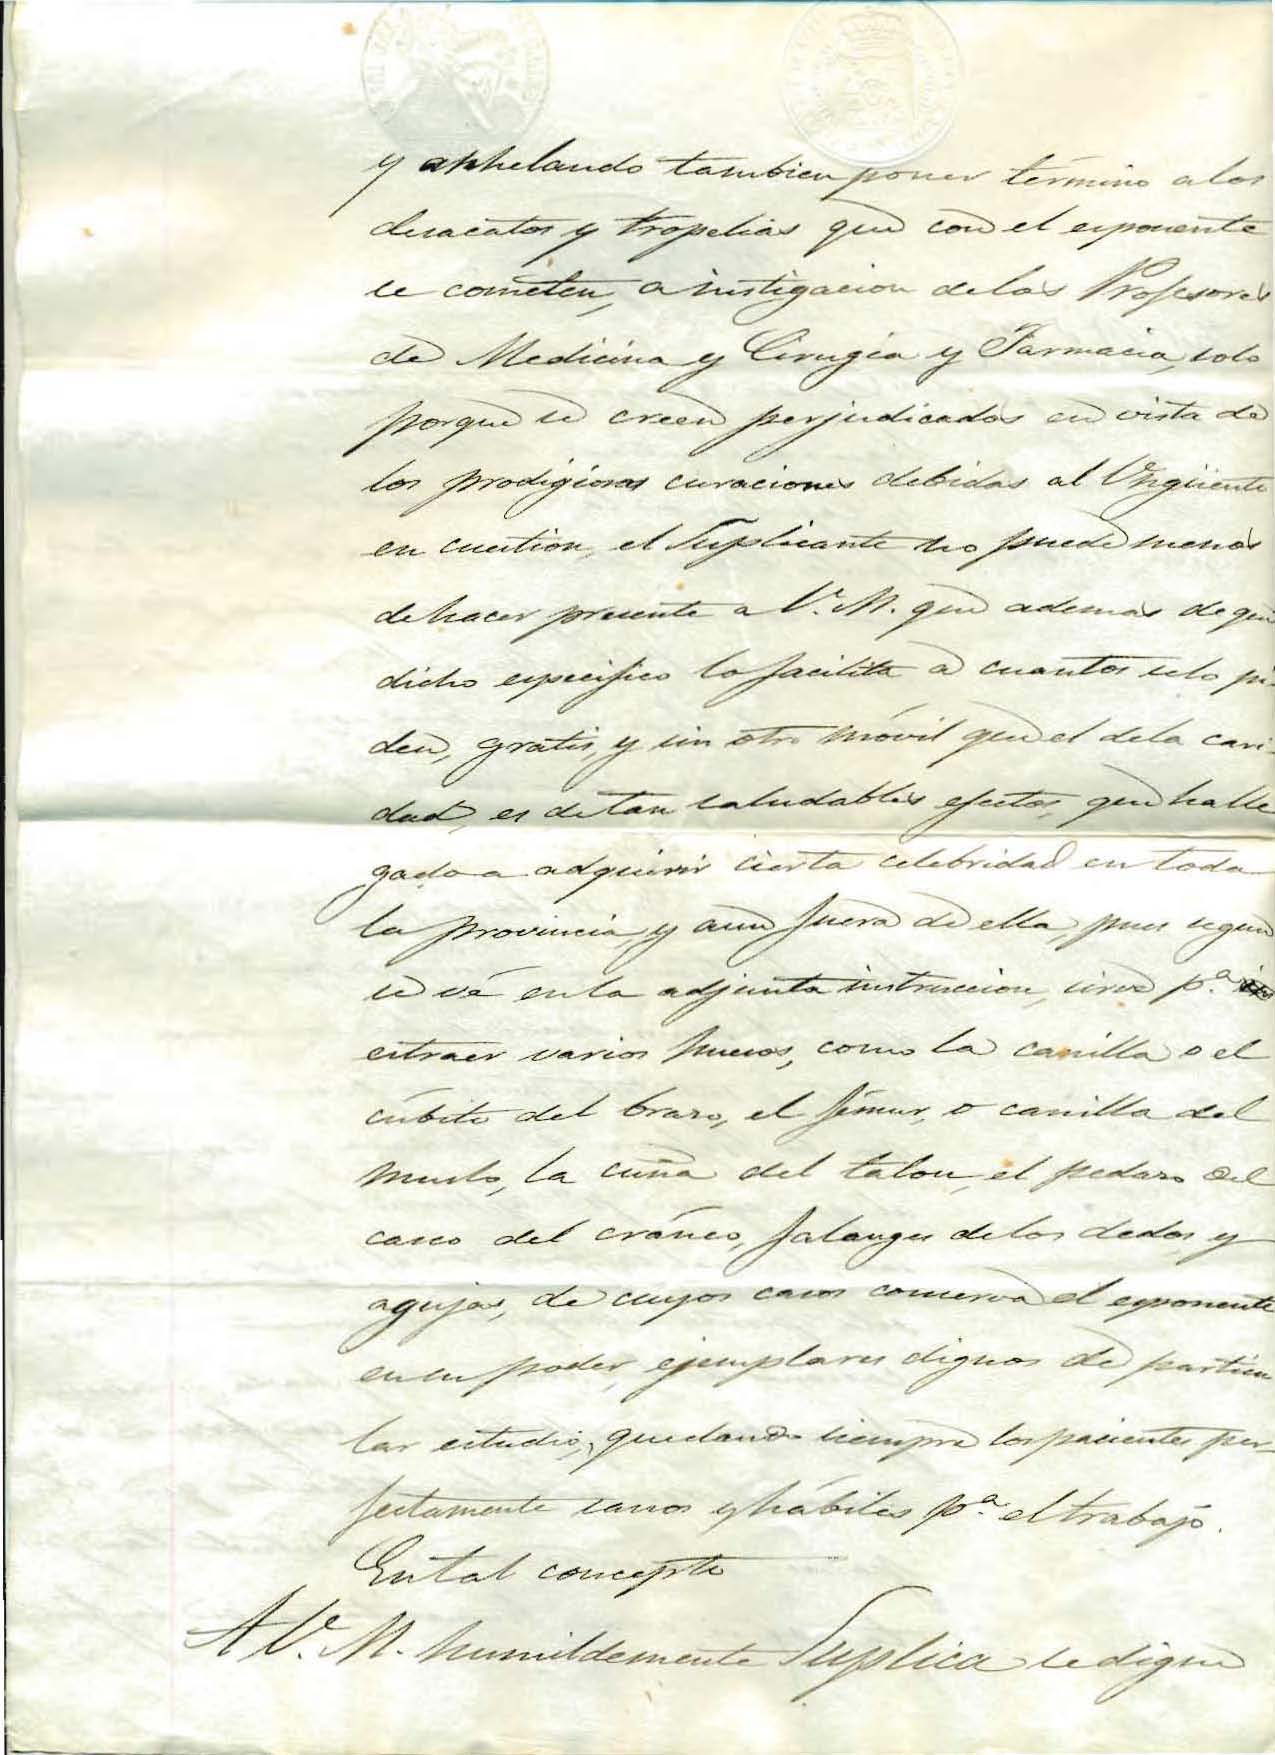 y anhelando tambien poner término a los
desacatos y tropelias que con el esponente
se cometen, a instigacion de los Profesores
de Medicina y Cirugia y Farmacia, solo
porque se creen perjudicados en vista de
los prodigiosas curaciones debidas al Ungüento
en cuestion, el Suplicante no puede menos
de hacer presente a V. M. que ademas de que
dicho especifico lo facilita a cuantos selo pi-
den, gratis, y sin otro móvil que el dela cari-
dad, es de tan saludables efectos, que halle
gado a adquirir cierta celebridad en toda
la provincia, y aun fuera de ella, pues segun
se vé en la adjunta instruccion, sirve p.ª
estraer varios huesos, como la canilla o el
cúbito del brazo, el fémur, o canilla del
muslo, la cuña del talon, el pedazo del
casco del cráneo, falanges de los dedos y
agujas, de cuyos casos conserva el esponente
en su poder, ejemplares dignos de particu
lar estudio, quedando siempre los pacientes per-
fectamente sanos y hábiles p.ª el trabajo.
En tal concepto
A V. M. humildemente Suplica se digne